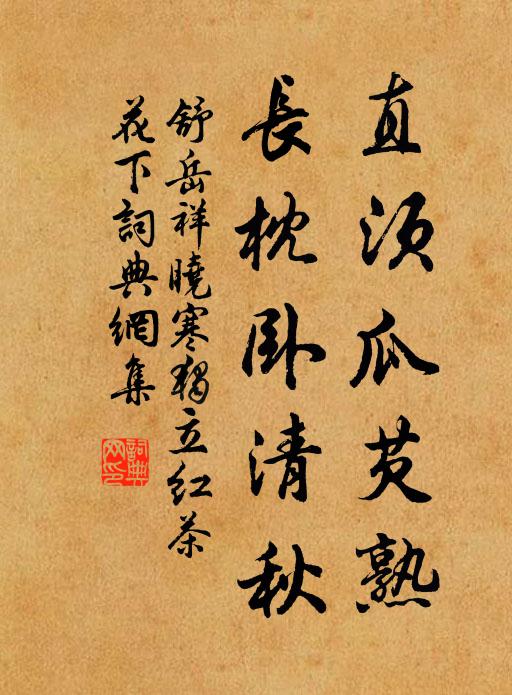 直須瓜芡熟
長枕臥清秋
舒岳祥曉寒獨立紅茶
花下詞典網集
詞典網印